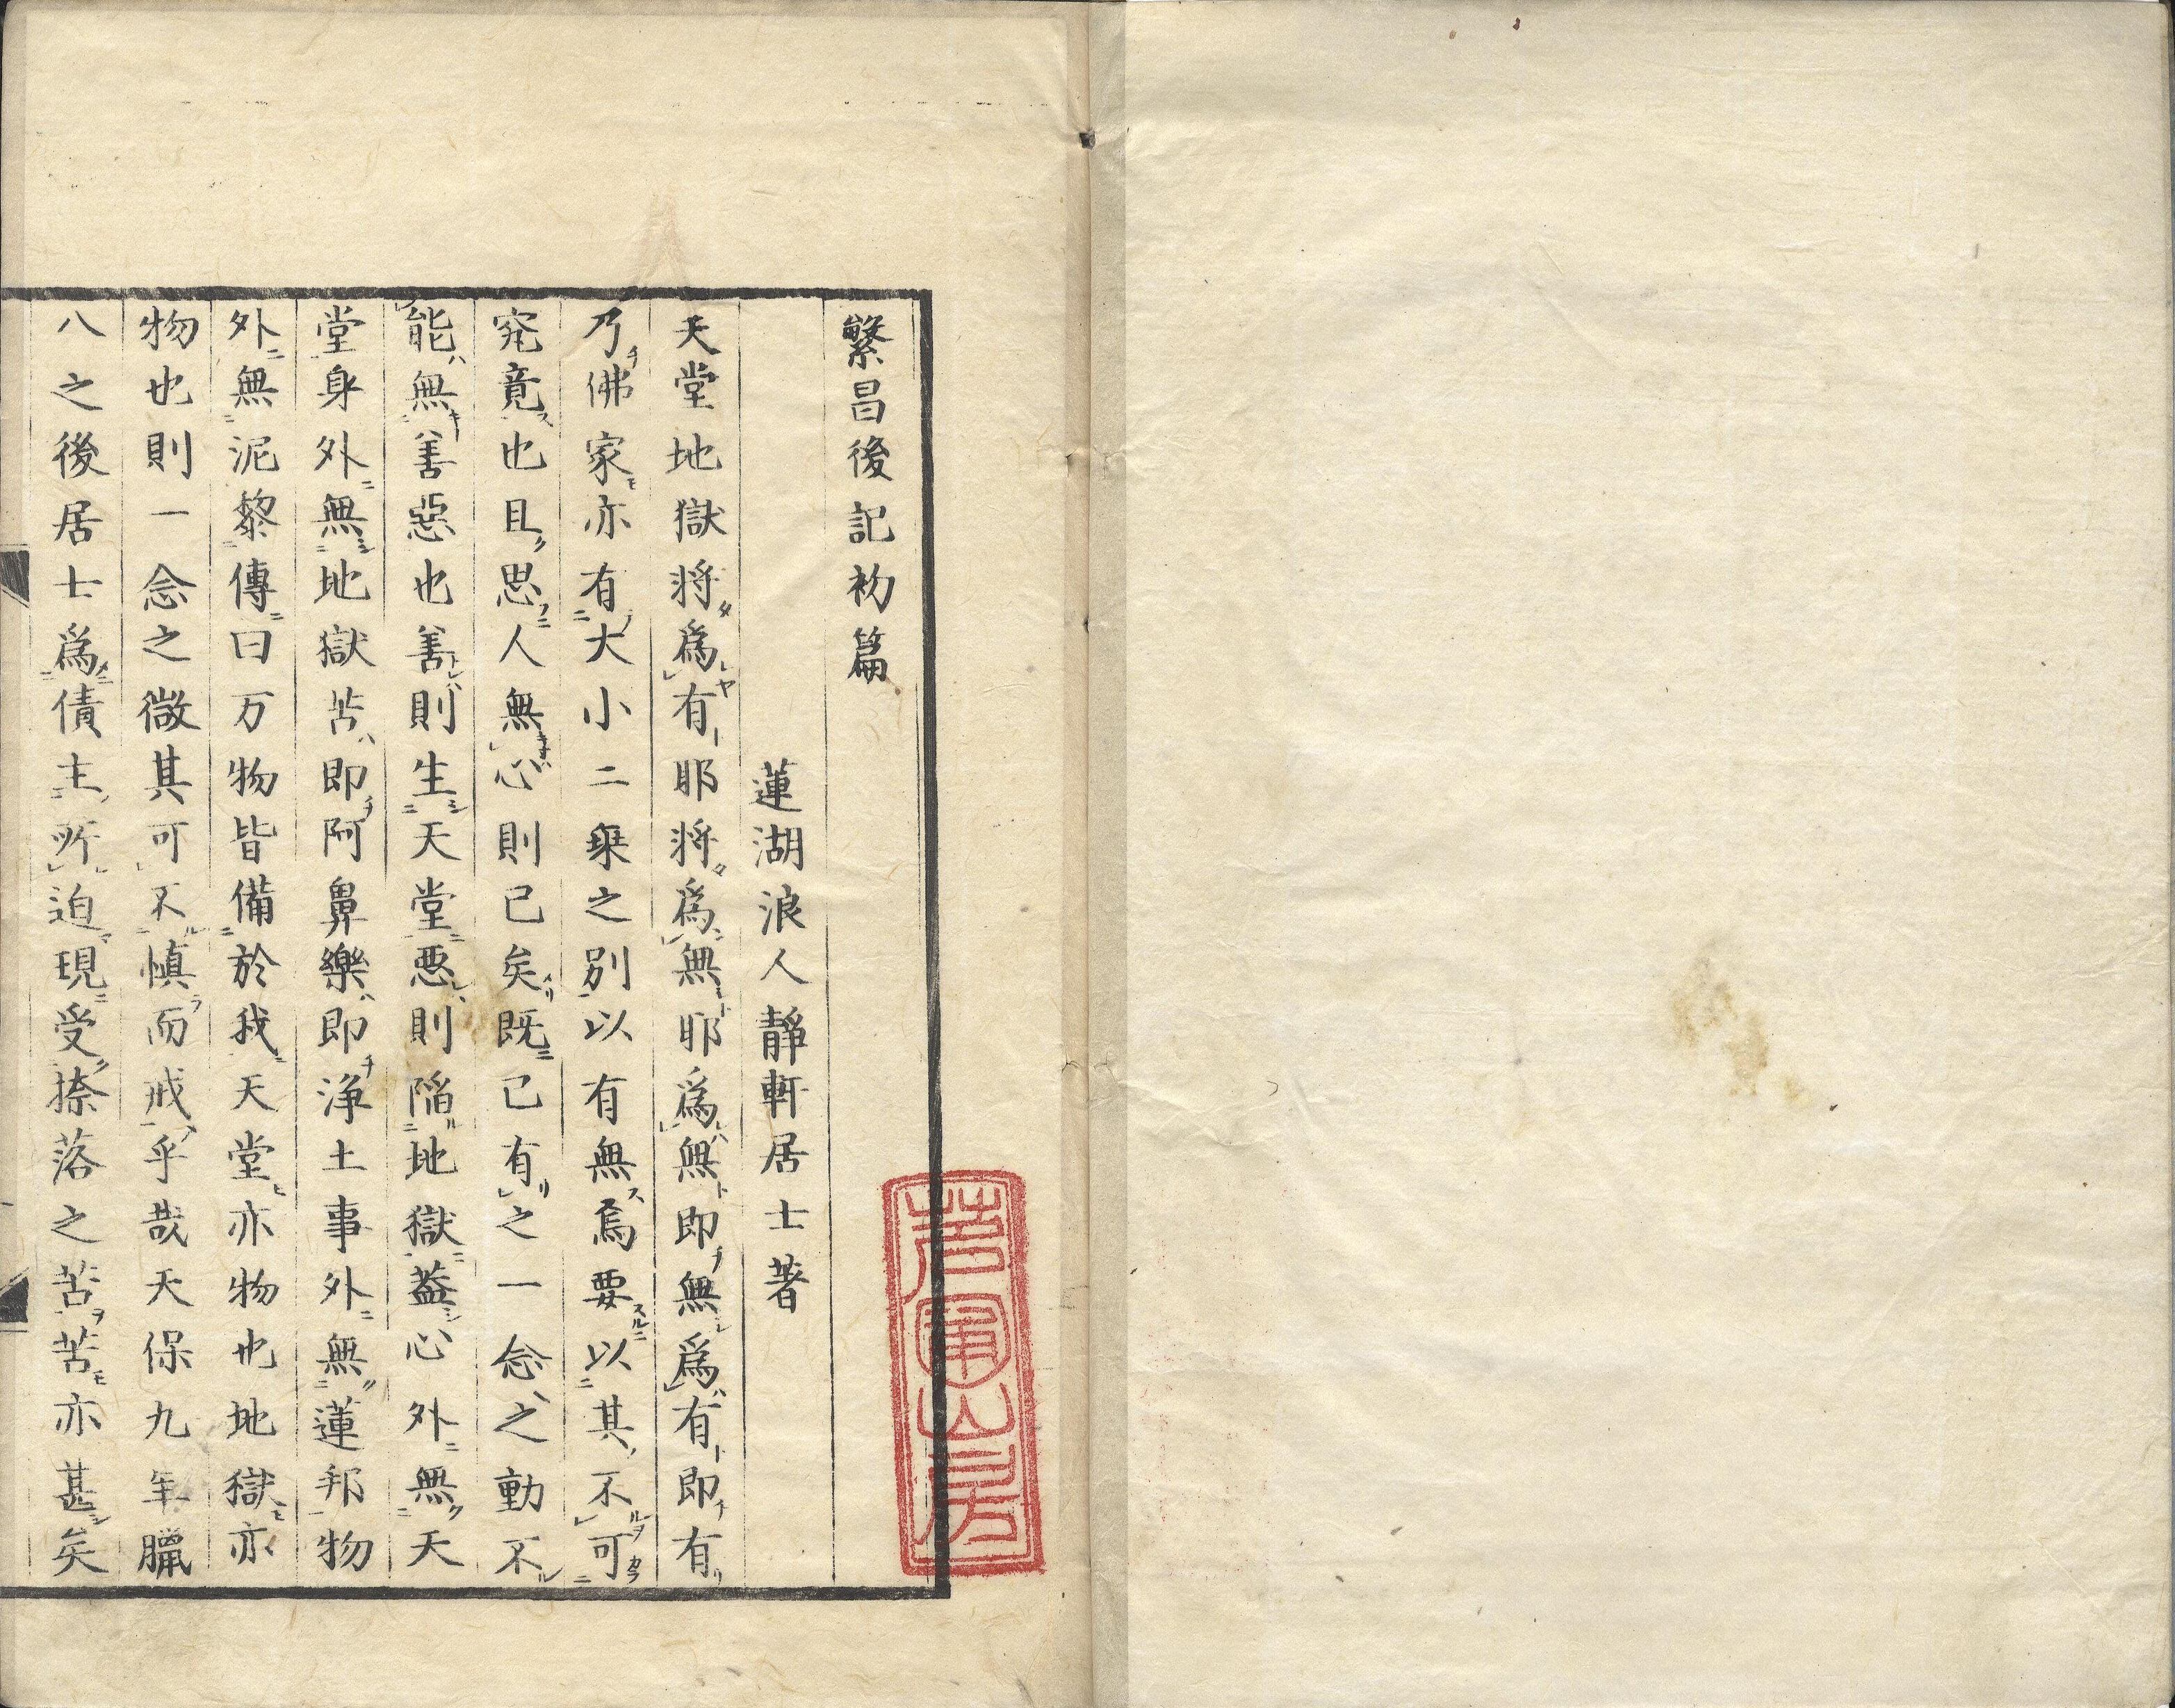 繁昌後記初篇
蓮湖浪人靜軒居士著
天堂地獄将爲有耶将爲無耶爲無即無爲有即有
乃佛家亦有大小二乗之別以有無焉要以其不可
究竟也且思人無心則已矣既已有之一念之動不
能無善惡也善則生天堂悪則陥地獄蓋心外無天
堂身外無地獄苦即阿鼻樂即浄土事外無蓮邦物
外無泥黎傳曰万物皆備於我天堂亦物也地獄亦
物也則一念之微其可不慎而戒乎哉天保九年臘
八之後居士爲債主所迫現受捺落之苦苦亦甚矣